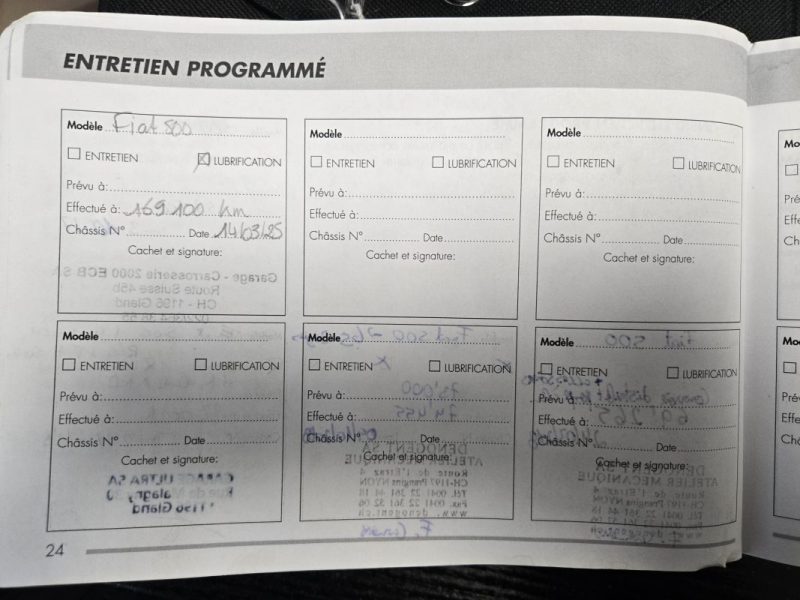 ENTRETIEN PROGRAMMÉ
Modèle Fiat 500
ENTRETIEN LUBRIFICATION
Prévu à:
Effectué à: 169 100 km
Châssis N° Date 14/03/25
Cachet et signature:
Modèle
ENTRETIEN LUBRIFICATION
Prévu à:
Effectué à:
Châssis N° Date
Cachet et signature:
Modèle
ENTRETIEN LUBRIFICATION
Prévu à:
Effectué à:
Châssis N° Date
Cachet et signature:
Modèle
ENTRETIEN LUBRIFICATION
Prévu à:
Effectué à:
Châssis N° Date
Cachet et signature:
Modèle
ENTRETIEN LUBRIFICATION
Prévu à:
Effectué à:
Châssis N° Date
Cachet et signature:
Modèle
ENTRETIEN LUBRIFICATION
Prévu à:
Effectué à:
Châssis N° Date
Cachet et signature:
24